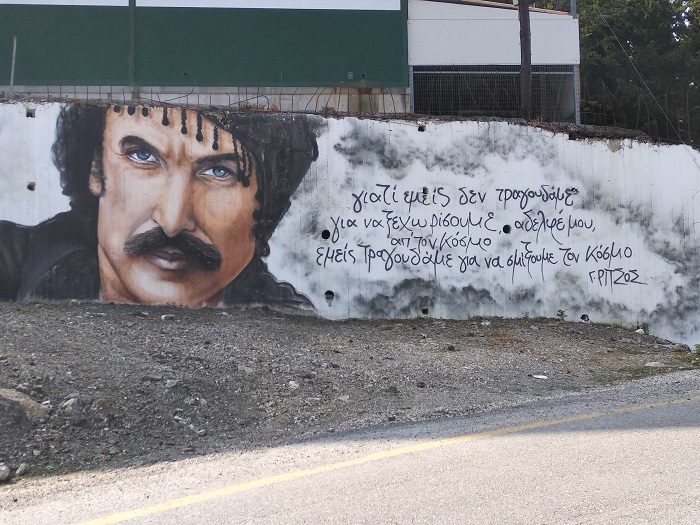 γιατί εμείς δεν τραγουδάμε
για να ξεχωρίσουμε, αδελφέ μου,
απ' τον κόσμο
εμείς τραγουδάμε για να σμίξουμε τον κόσμο
ΓΡΙΤΣΟΣ